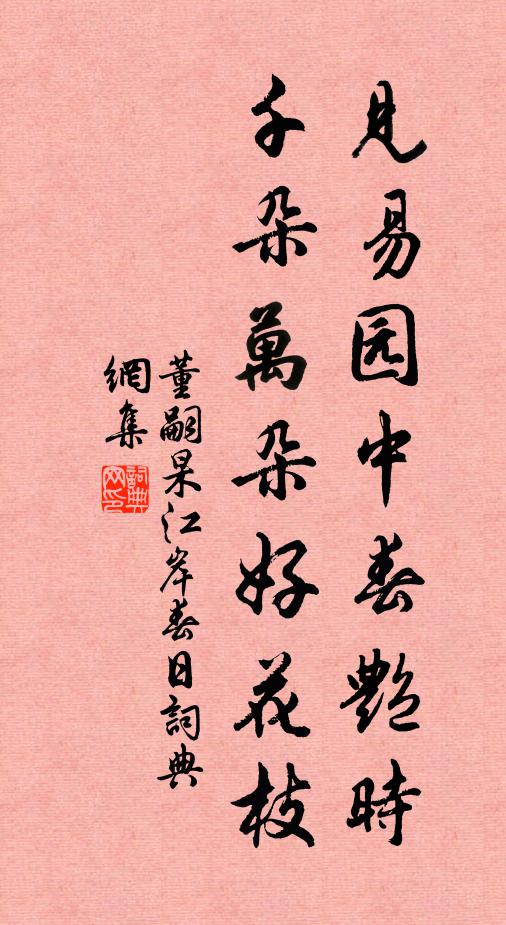 見易园中春艷時
千朵萬朵好花枝
董嗣杲江岸春日詞典
網集
詞典
网印